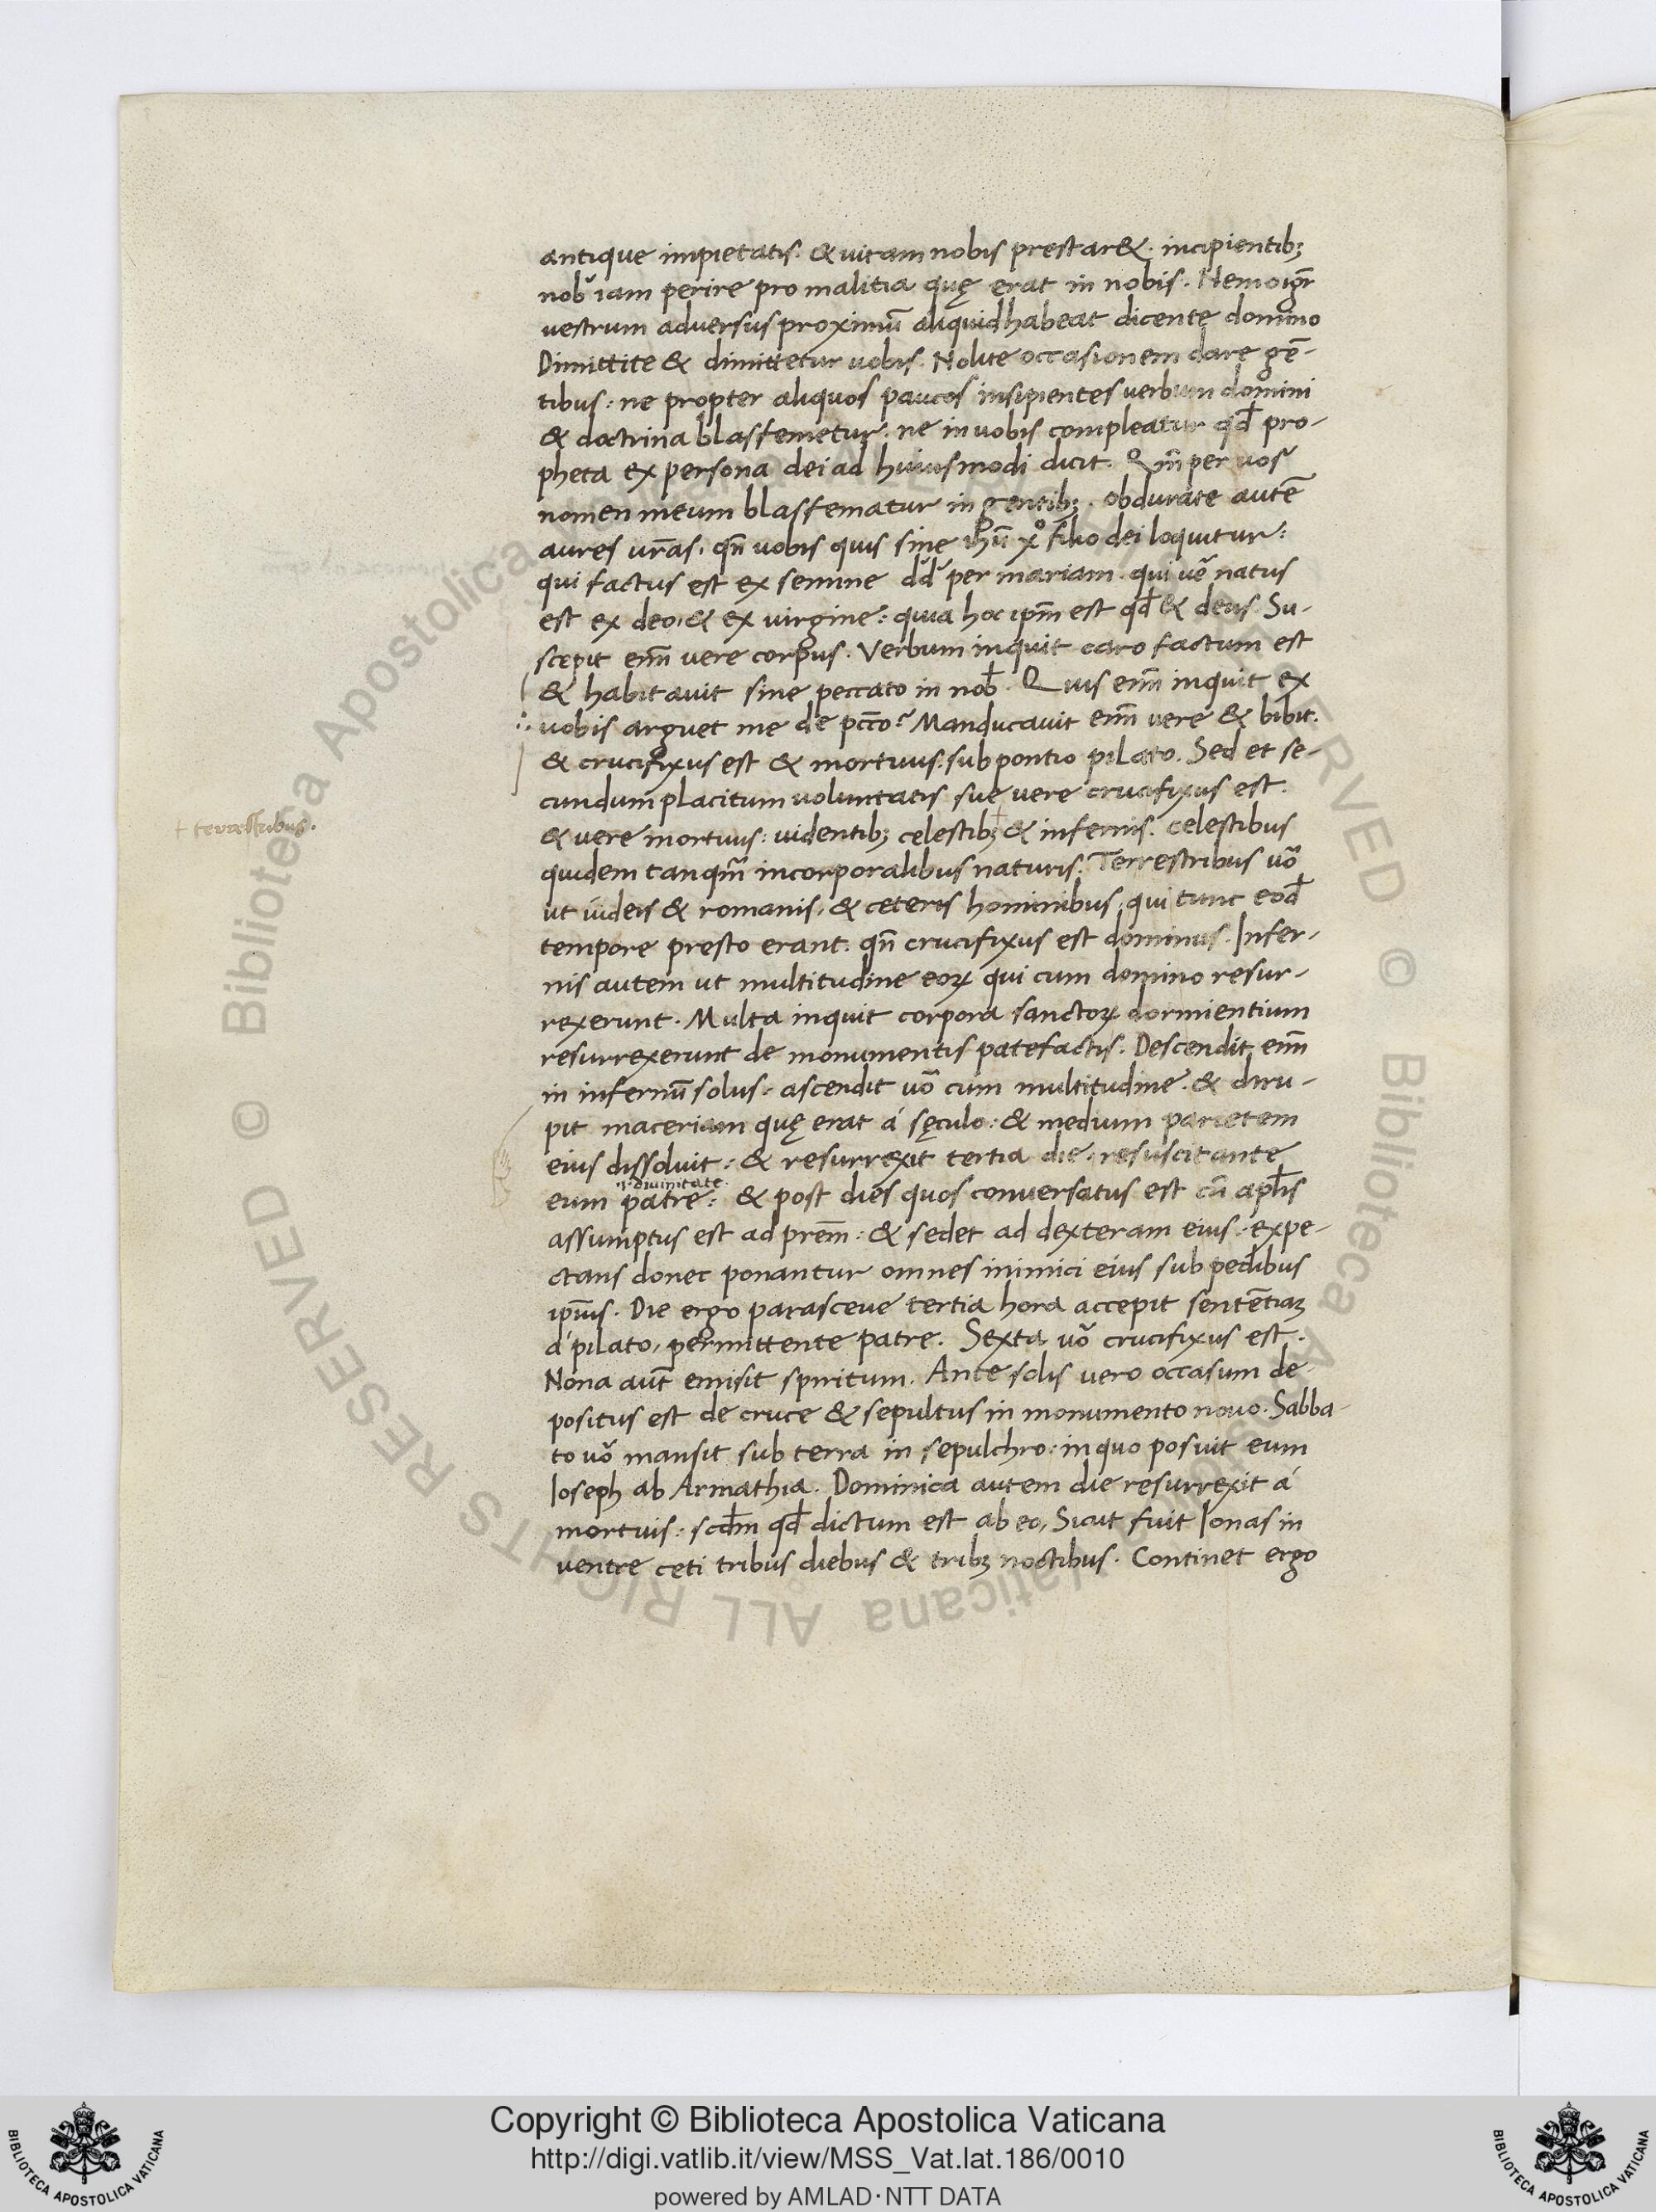 antique impietatis. & vitam nobis prestar&. incipientib;
nob᷒ iam perire pro malitia quę erat in nobis. Nemo igr̄
vestrum adversus proximū aliquid habeat dicente domino
Dimittite & dimittetur vobis. Nolite occasionem dare gē-
tibus: ne propter aliquos paucos insipientes verbum domini
& doctrina blasfemetur. ne in vobis compleatur qđ pro-
pheta ex persona dei ad huiusmodi dicit. Qm̄ per vos
nomen meum blasfematur in gentib;. obdurate autē
aures vr̄as. qn̄ vobis quis sine ihū xᵒ filio dei loquitur:
qui factus est ex semine dd᷒ per mariam. qui vē natus
est ex deo. & ex virgine: quia hoc ipm̄ est qđ & deus. Su-
scepit enm̄ vere corpus. Verbum inquit caro factum est
& habitavit sine peccato in nob̄. Quis enm̄ inquit ex
vobis arguet me de pcc̄o? Manducavit enm̄ vere & bibit.
& crucifixus est & mortuus. sub pontio pilato. Sed et se-
cundum placitum voluntatis sue vere crucifixus est.
+ terrestribus.
& vere mortuus: videntib; celestib; + & infernis. Celestibus
quidem tanqm̄ incorporalibus naturis. Terrestribus vō
ut iudeis & romanis. & ceteris hominibus, qui tunc eođ
tempore presto erant. qn̄ crucifixus est dominus. Infer-
nis autem ut multitudine eoꝝ qui cum domino resur-
rexerunt. Multa inquit corpora sanctoꝝ dormientium
resurrexerunt de monumentis patefactis. Descendit enm̄
in infernū solus. ascendit vō cum multitudine. & diru-
pit maceriam quę erat á sęculo: & medium parietem
eius dissolvit: & resurrexit tertia die. resuscitante
.i. divinitate.
eum patre: & post dies quos conversatus est cū apl̄is
assumptus est ad prem̄: & sedet ad dexteram eius: expe-
ctans donec ponantur omnes inimici eius sub pedibus
ipīus. Die ergo parasceve tertia hora accepit sentētiaꝫ
á pilato, permittente patre. Sexta vō crucifixus est.
Nona aut̄ emisit spiritum. Ante solis vero occasum de
positus est de cruce & sepultus in monumento novo. Sabba-
to vō mansit sub terra in sepulchro: in quo posuit eum
Ioseph ab Armathia. Dominica autem die resurrexit á
mortuis: scđm qđ dictum est ab eo, Sicut fuit Ionas in
ventre ceti tribus diebus & trib; noctibus. Continet ergo
© Biblioteca Apostolica Vaticana ALL RIGHTS RESERVED
Copyright © Biblioteca Apostolica Vaticana
http://digi.vatlib.it/view/MSS_Vat.lat.186/0010
powered by AMLAD·NTT DATA
BIBLIOTECA APOSTOLICA VATICANA
BIBLIOTECA APOSTOLICA VATICANA